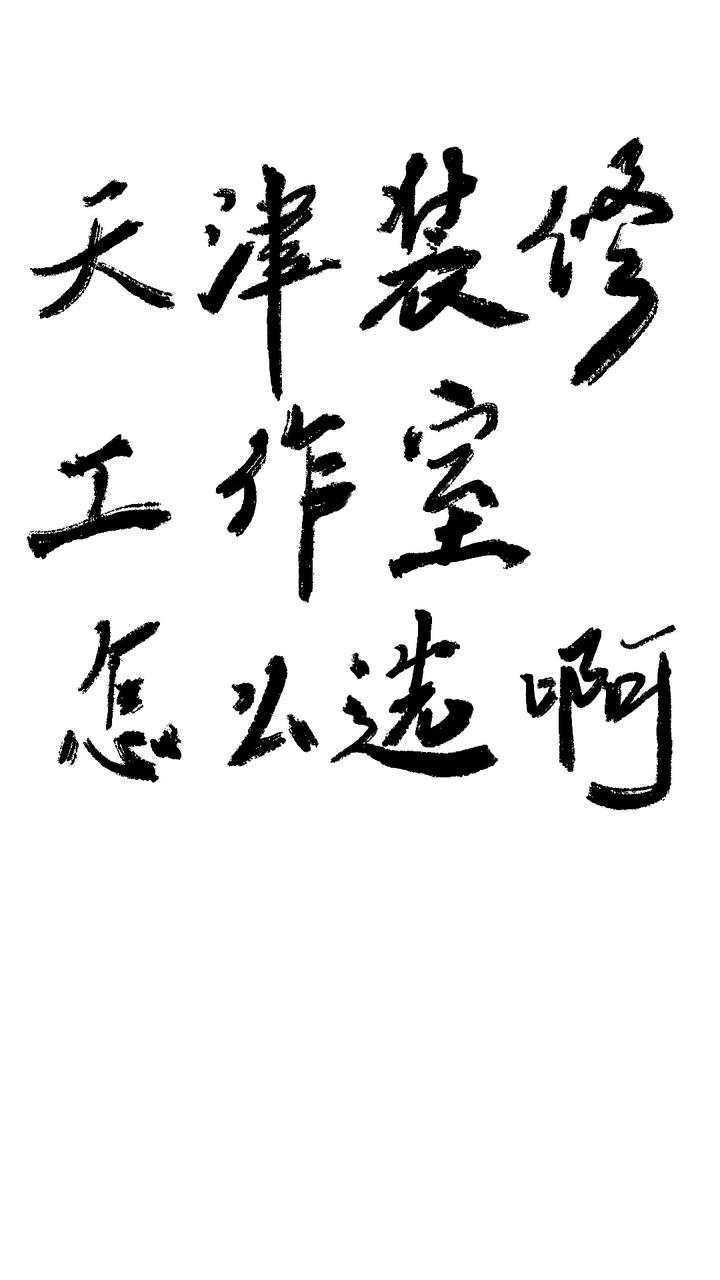 天津装修
工作室
怎么选啊